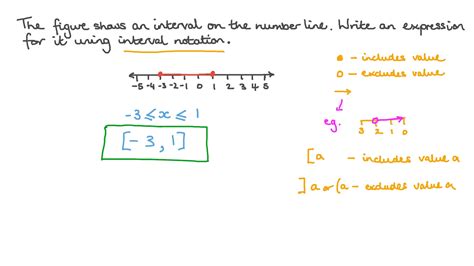 The figure shows an interval on the number line. Write an expression
for it using interval notation.
● – includes value
○ – excludes value
-5 -4 -3 -2 -1 0 1 2 3 4 5
-3 ≤ x ≤ 1
[-3, 1]
eg.
3 2 1 0
[a – includes value a
]a or (a – excludes value a